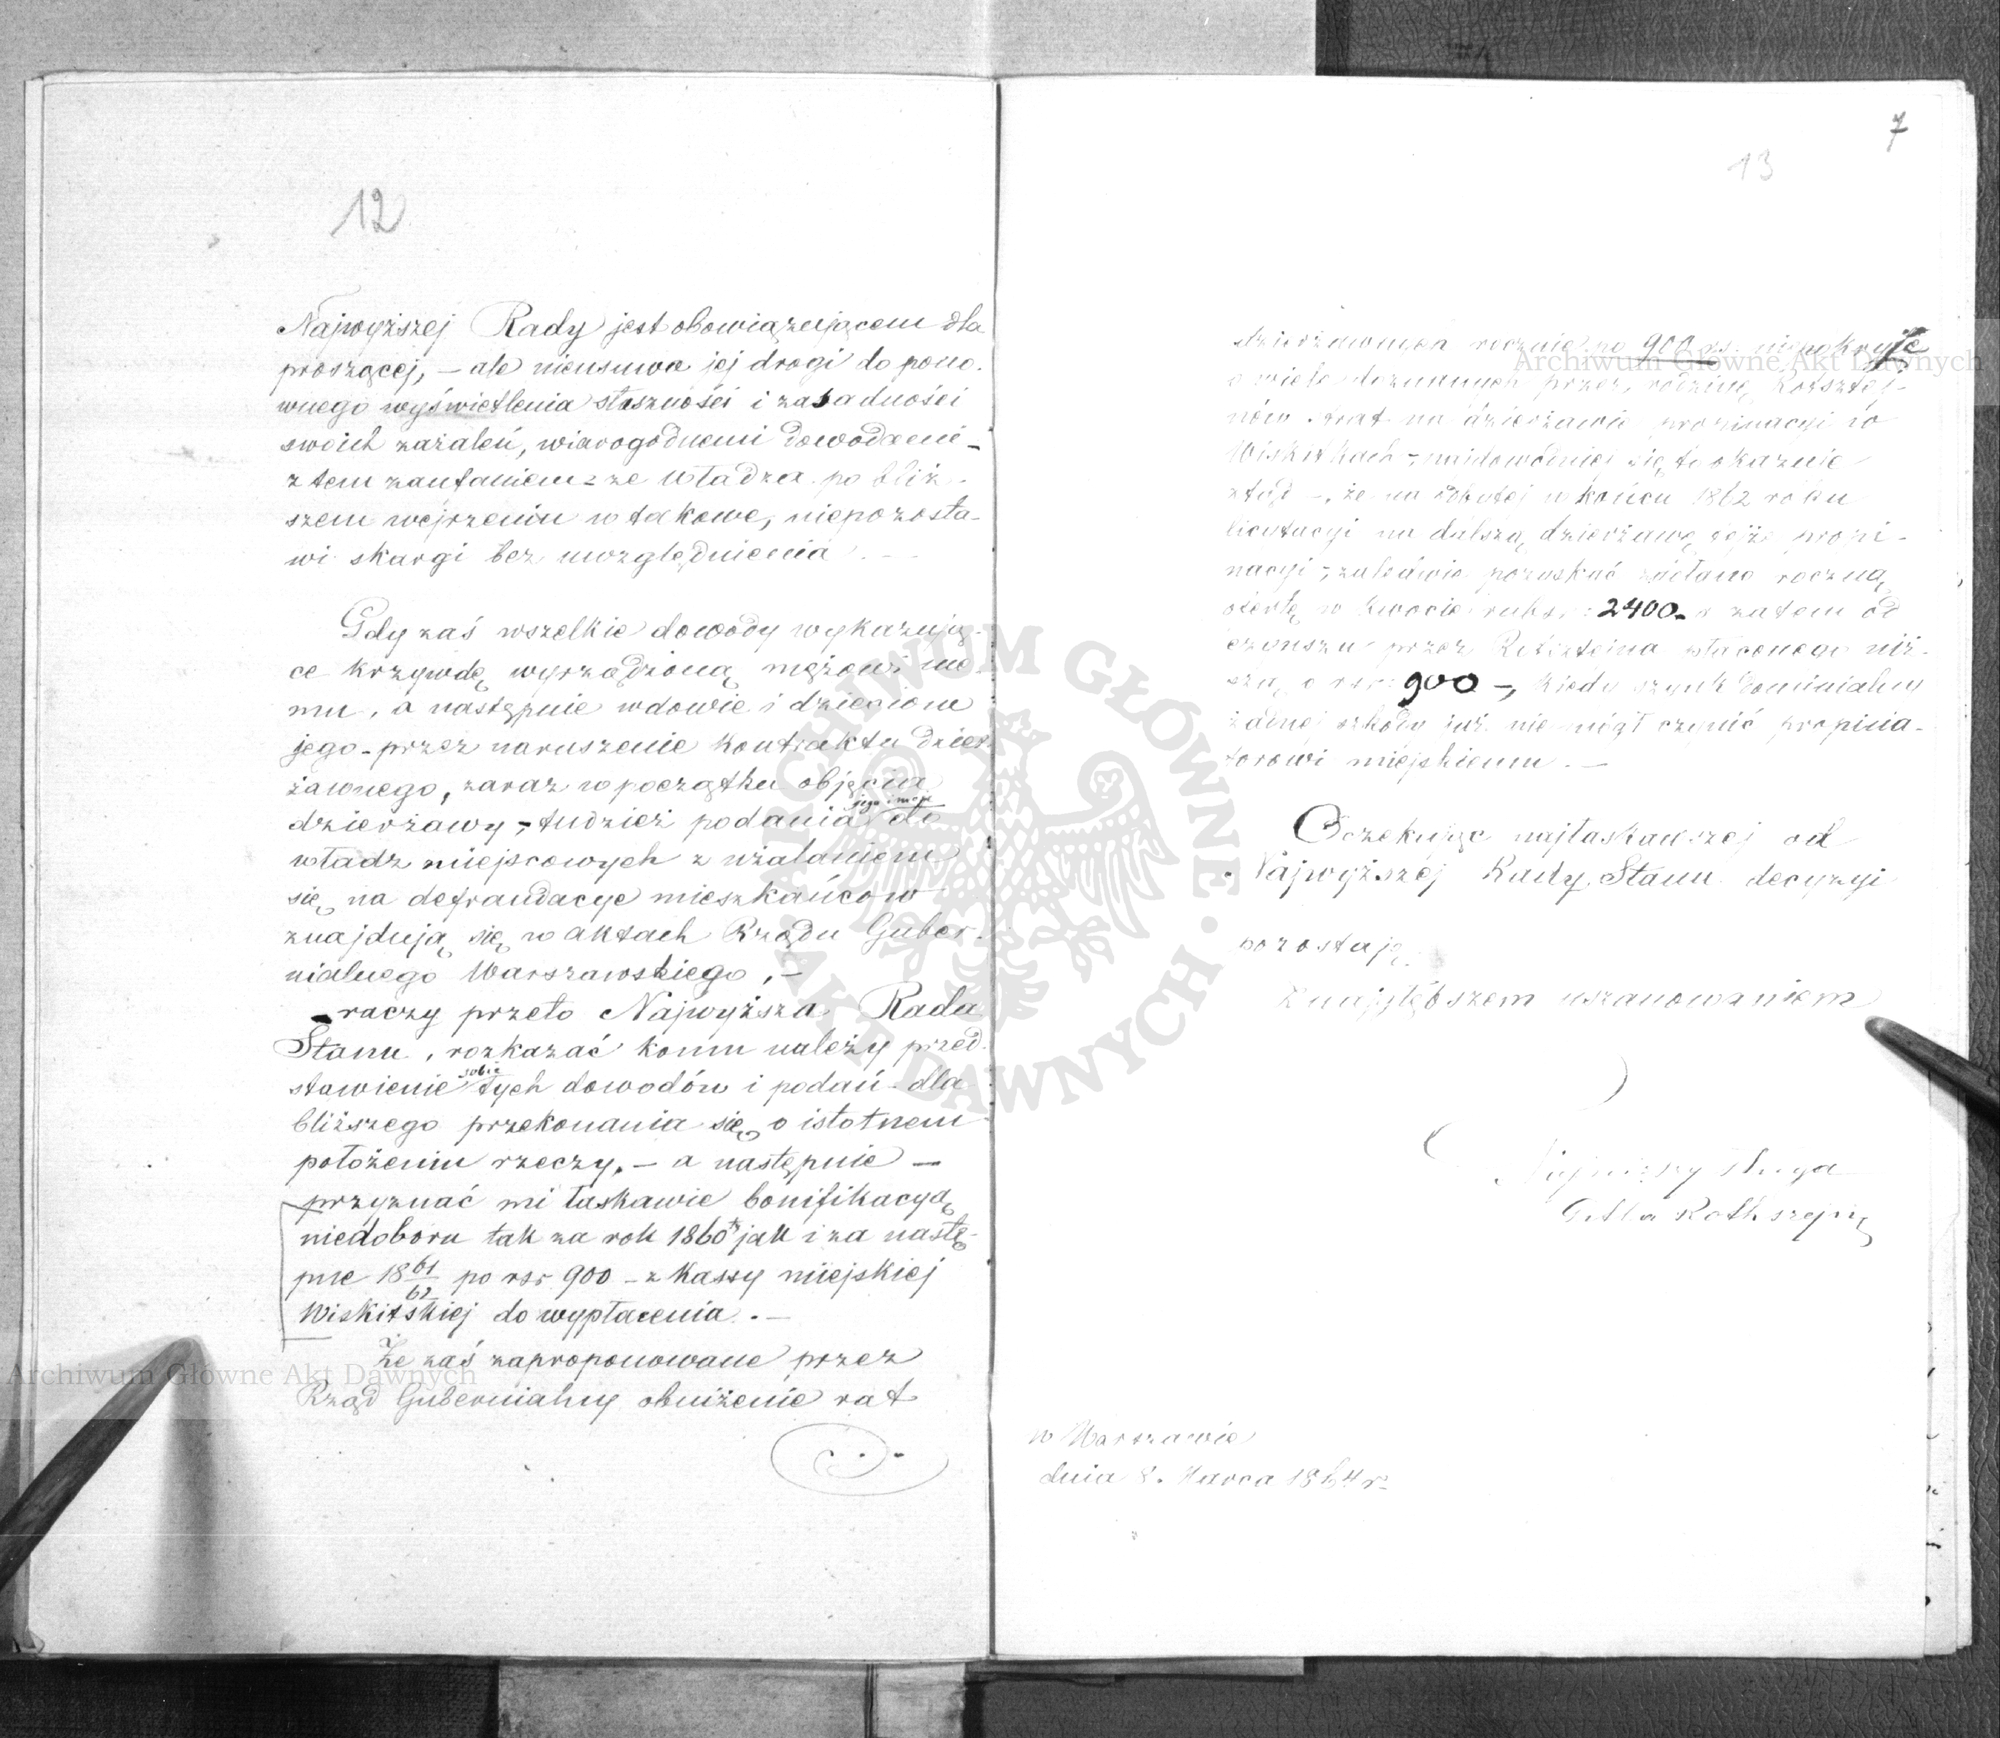 12
Najwyższej Rady jest obowiązującem dla
proszącej, – ale nieusuwa jej drogi do pono-
wnego wyświetlenia słuszności i zasadności
swoich zażaleń, wiarogodnemi dowodami –
z tem zaufaniem – że Władza po bliż-
szem wejrzeniu w takowe, niepozosta-
wi skargi bez uwzględnienia. –
Gdy zaś wszelkie dowody wykazują-
ce krzywdę wyrządzoną mężowi me-
mu, a następnie wdowie i dzieciom
jego – przez naruszenie kontraktu dzier-
żawnego, zaraz w początku objęcia
jego i moje
dzierżawy, – tudzież podania do
władz miejscowych z użalaniem
się na defraudacye mieszkańcow
znajdują się w aktach Rządu Guber-
nialnego Warszawskiego, –
raczy przeto Najwyższa Rada
Stanu, rozkazać komu należy przed-
sobie
stawienie tych dowodów i podań – dla
bliższego przekonania się o istotnem
położeniu rzeczy, – a następnie –
przyznać mi łaskawie bonifikacyą
niedoboru tak za rok 1860 jak i za nastę-
pne 18 61/62 po rsr 900 – z Kassy miejskiej
Wiskitskiej do wypłacenia. –
Że zaś zaproponowane przez
Rząd Gubernialny obniżenie rat
7
13
dzierżawnych rocznie po 900 rs. niepokryje
o wiele doznanych przez rodzinę Rotsztej-
nów strat na dzierżawie propinacyi w
Wiskitkach –, najdowodniej się to okazuje
ztąd –, że na odbytej w końcu 1862 roku
licytacyi na dalszą dzierżawę tejże propi-
nacyi –, zaledwie pozyskać zdołano roczną
ofertę w kwocie rubsr: 2400 – a zatem od
czynszu przez Rotsztejna płaconego niż-
szą o rsr: 900 –, kiedy szynk dominialny
żadnej szkody już nie mógł czynić propina-
torowi miejskiemu. –
Oczekując najłaskawszej od
Najwyższéj Rady Stanu decyzyi
pozostaję
z najgłębszem uszanowaniem
Najniższy sługa
Gitla Rothsztejn
w Warszawie
dnia 8. Marca 1864 r.
Archiwum Główne Akt Dawnych
Archiwum Główne Akt Dawnych
ARCHIWUM GŁÓWNE · AKT DAWNYCH ·